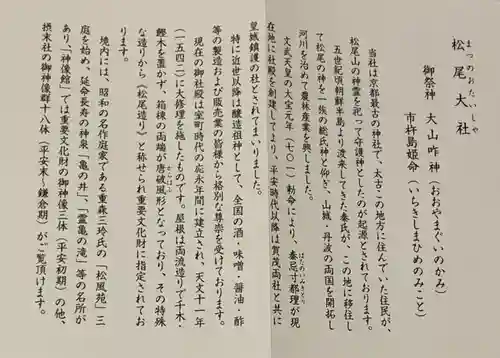 まつのおたいしゃ
松尾大社
御祭神 大山咋神（おおやまぐいのかみ）
市杵島姫命（いちきしまひめのみこと）
当社は京都最古の神社で、太古この地方に住んでいた住民が、
松尾山の神霊を祀って守護神としたのが起源とされております。
五世紀頃朝鮮半島より渡来してきた秦氏が、この地に移住し
て松尾の神を一族の総氏神と仰ぎ、山城・丹波の両国を開拓し
河川を治めて農林産業を興しました。
文武天皇の大宝元年（七〇一）勅命により、秦忌寸都理が現
はたのいみきとり
在地に社殿を創建してより、平安時代以降は賀茂両社と共に
皇城鎮護の社とされてまいりました。
特に近世以降は醸造祖神として、全国の酒・味噌・醤油・酢
等の製造および販売業の皆様から格別な尊崇を受けております。
現在の御社殿は室町時代の応永年間に建立され、天文十一年
（一五四二）大修理を施したものです。屋根は両流造りで千木・
鰹木を置かず、箱棟の両端が唐破風形となっており、その特殊
な造りから《松尾造り》と称せられ重要文化財に指定されてお
ります。
境内には、昭和の名作庭家である重森三玲氏の「松風苑」三
庭を始め、延命長寿の神泉「亀の井」、「霊亀の滝」等の名所が
あり、「神像館」では重要文化財の御神像三体（平安初期）の他、
摂末社の御神像群十八体（平安末～鎌倉期）がご覧頂けます。